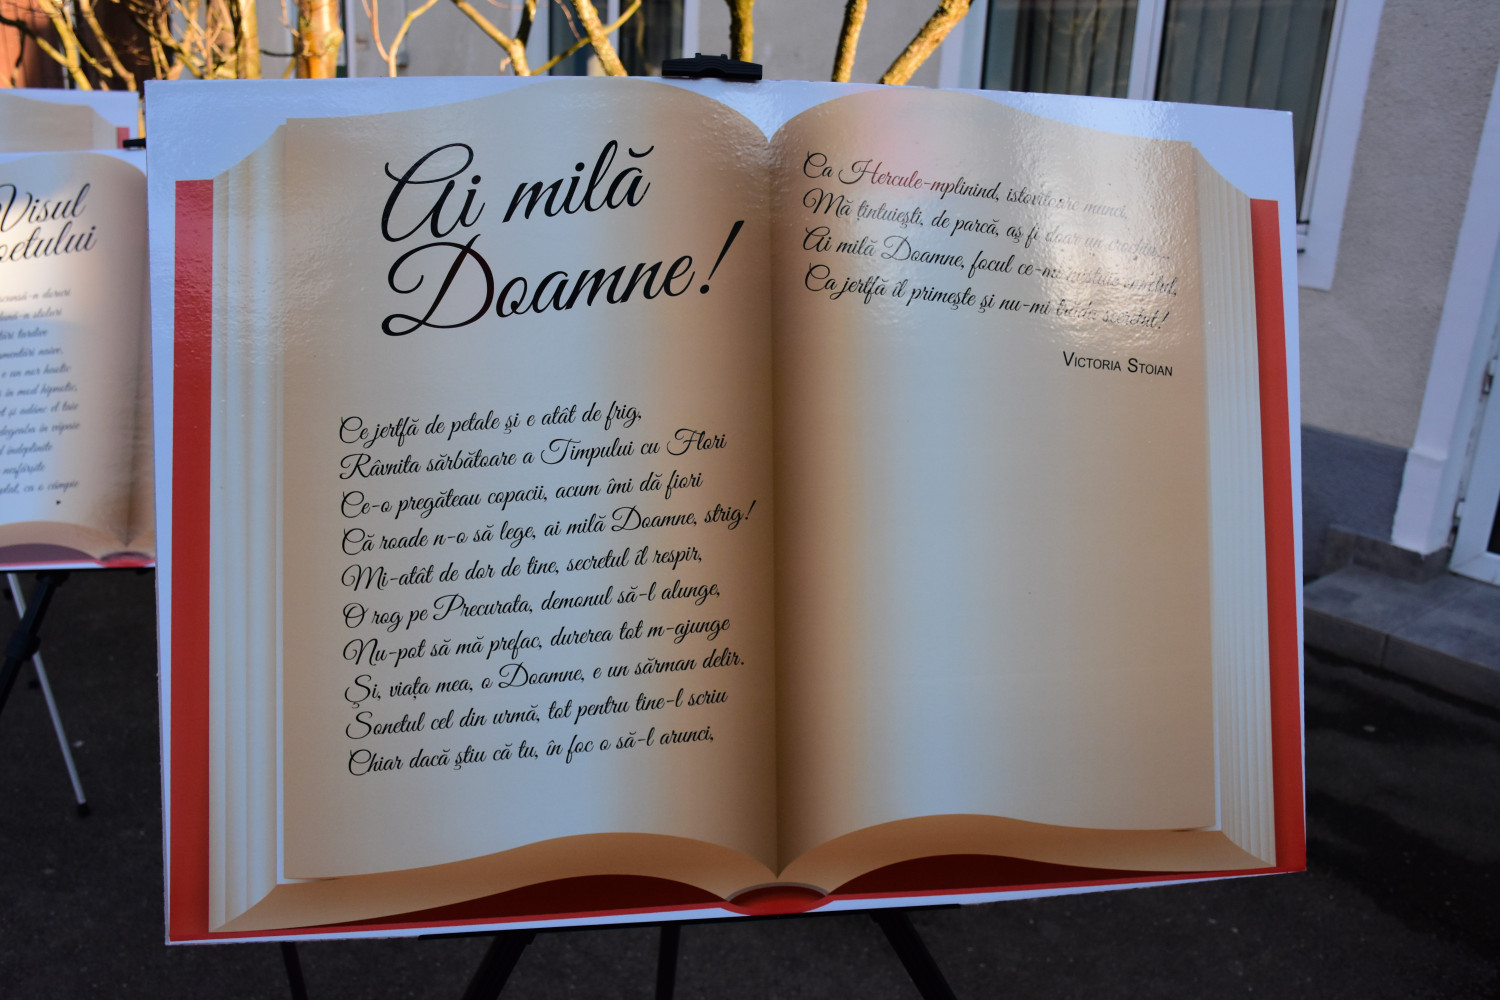 Visul
Ai milă
Doamne!
Ce jertfă de petale şi e atât de frig,
Râvnita sărbătoare a Timpului cu Flori
Ce-o pregăteau copacii, acum îmi dă fiori
Că roade n-o să lege, ai milă Doamne, strig!
Mi-atât de dor de tine, secretul îl respir,
O rog pe Precurata, demonul să-l alunge,
Nu-pot să mă prefac, durerea tot m-ajunge
Şi, viața mea, o Doamne, e un sărman delir.
Sonetul cel din urmă, tot pentru tine-l scriu
Chiar dacă ştiu că tu, în foc o să-l arunci,
Ca Hercule-mplinind, istovitoare munci,
Mă țintuieşti, de parcă, aş fi doar un
Ai milă Doamne, focul
Ca jertfă îl primeşte şi nu-mi
Victoria Stoian